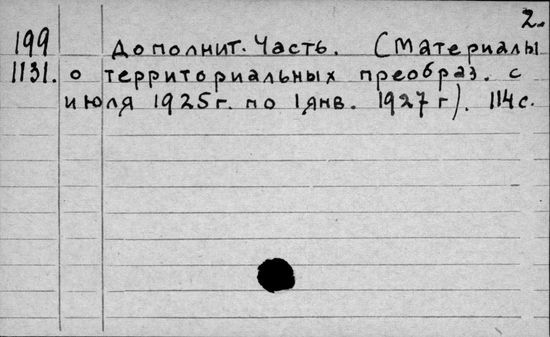 2.
199 Дополнит. Часть. (Материалы
1131. о территориальных преобраз. с
июля 1925г. по 1 янв. 1927 г). 114 с.